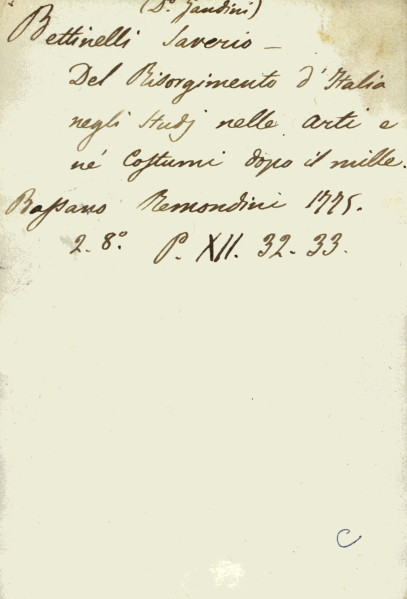 (D.º Gandini)
Bettinelli Saverio –
Del Risorgimento d'Italia
negli Studj nelle arti e
né Costumi dopo il mille.
Bassano Remondini 1775.
2. 8.º P. XII. 32. 33.
C